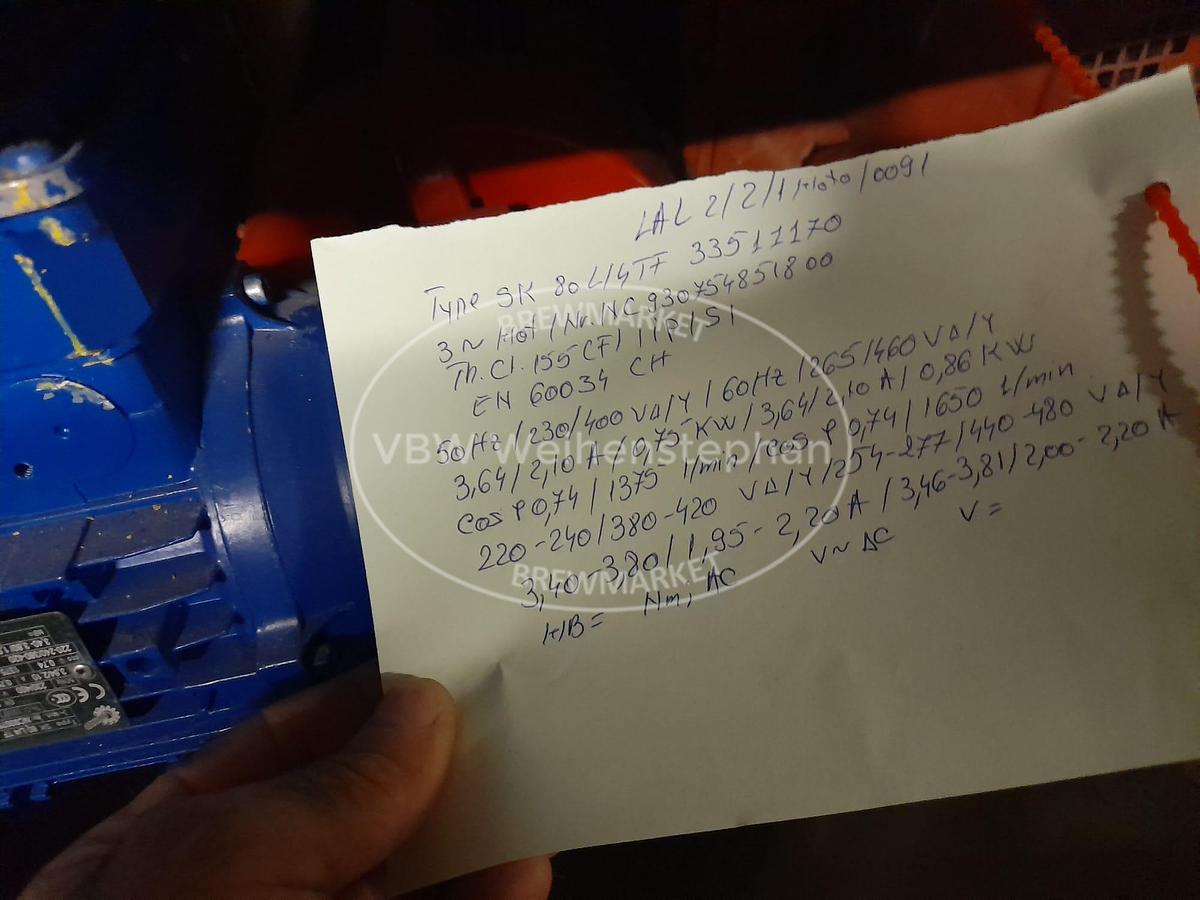 LAL 2/2/1 Moto/0091
Type SK 80L/4TF 33511170
3~ Mot/Nr.NC 930754851800
Th.Cl.155(F) IP/51
EN 60034 CH
50Hz/230/400 VΔ/Y/60Hz/265/460 VΔ/Y
3,64/2,10 A/0,75 KW/3,64/2,10 A/0,86 KW
cos φ 0,74/1375 1/min/cos φ 0,74/1650 1/min
220-240/380-420 VΔ/Y/254-277/440-480 VΔ/Y
3,40-3,80/1,95-2,20 A/3,46-3,81/2,00-2,20 A
H/B= Nm; AC V~ ΔC V=
BREWMARKET
VBW Weihenstephan
BREWMARKET